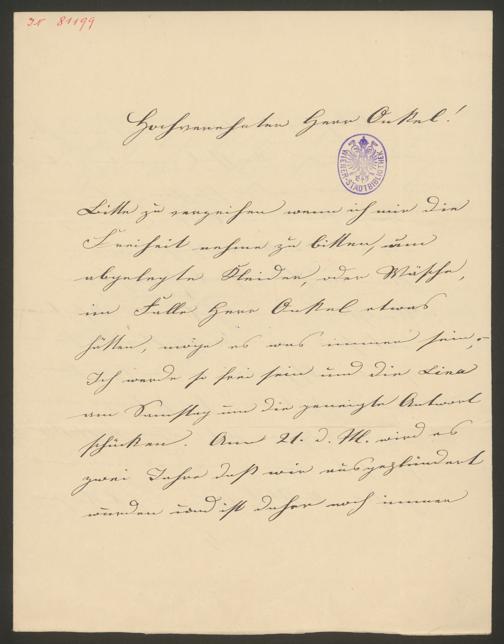 IN 81199
Hochverehrter Herr Onkel!
WIENER STADTBIBLIOTHEK
Bitte zu verzeihen wenn ich mir die
Freiheit nehme zu bitten, um
abgelegte Kleider, oder Wäsche,
im Falle Herr Onkel etwas
hätten, möge es was immer sein,-
Ich werde so frei sein und die Lina
am Samstag um die geneigte Antwort
schicken. Am 21. d. M. wird es
zwei Jahre daß wir ausgeplündert
wurden und ist daher noch immer